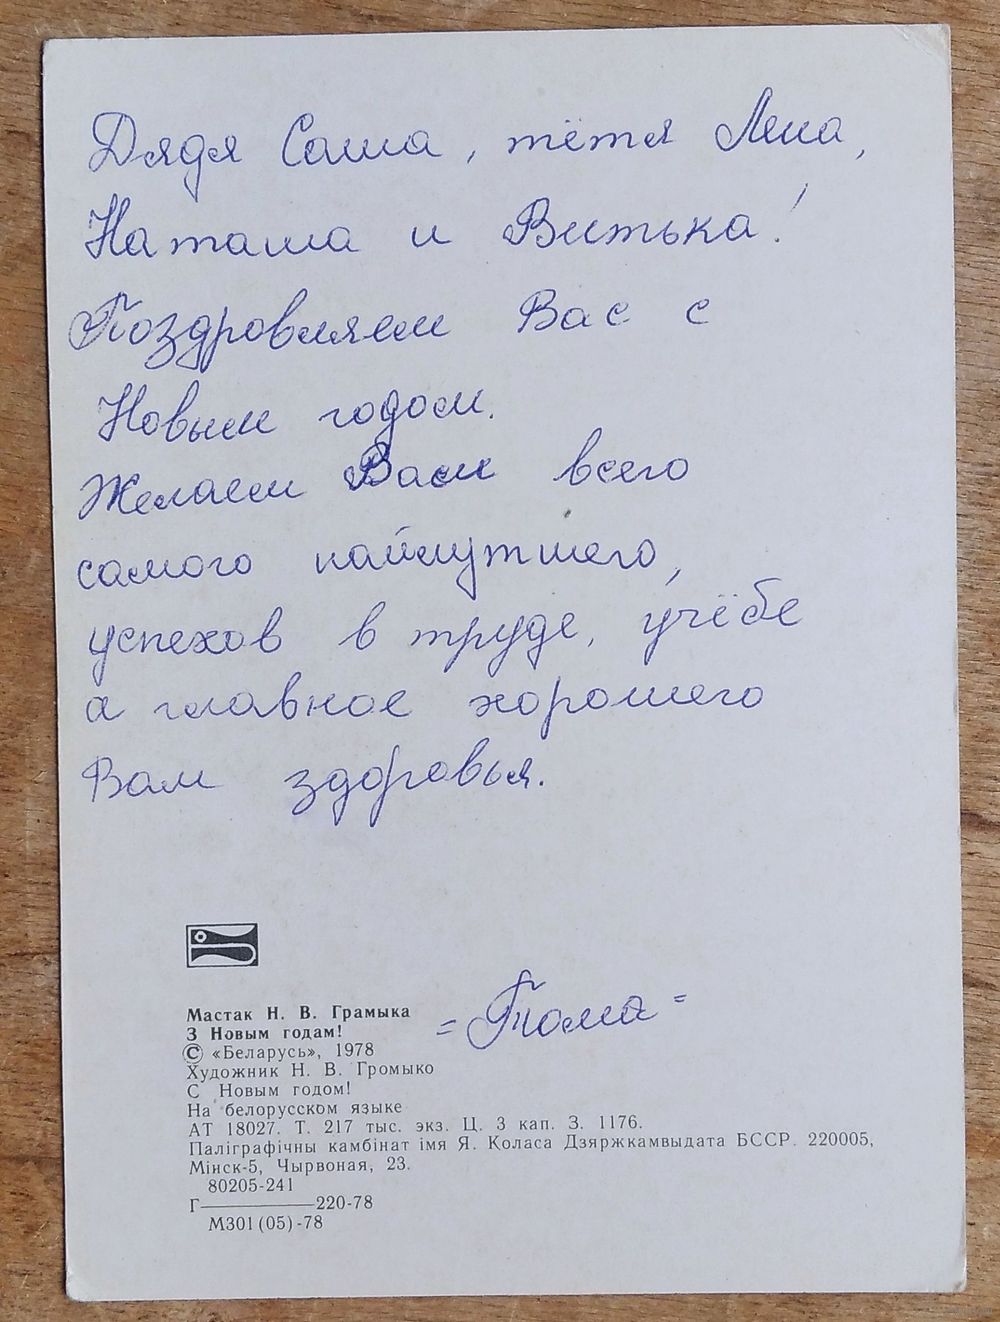 Дядя Саша, тётя Лена,
Наташа и Витька!
Поздровляем Вас с
Новым годом.
Желаем Вам всего
самого найлутшего,
успехов в труде, учёбе
а главное хорошего
Вам здоровья.
= Тома =
Мастак Н. В. Грамыка
З Новым годам!
© «Беларусь», 1978
Художник Н. В. Громыко
С Новым годом!
На белорусском языке
АТ 18027. Т. 217 тыс. экз. Ц. 3 кап. З. 1176.
Паліграфічны камбінат імя Я. Коласа Дзяржкамвыдата БССР. 220005,
Мінск-5, Чырвоная, 23.
80205-241
Г————220-78
М301(05)-78